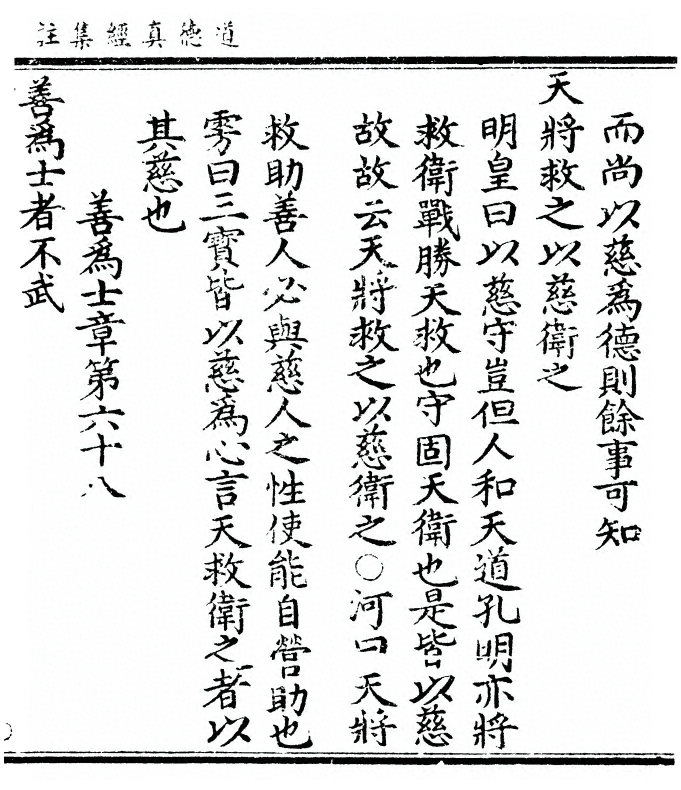 道德真經集註
而尚以慈爲德則餘事可知
天將救之以慈衛之
明皇曰以慈守豈但人和天道孔明亦將
救衛戰勝天救也守固天衛也是皆以慈
故故云天將救之以慈衛之○河曰天將
救助善人必與慈人之性使能自營助也
雱曰三寳皆以慈爲心言天救衛之者以
其慈也
善爲士章第六十八
善爲士者不武